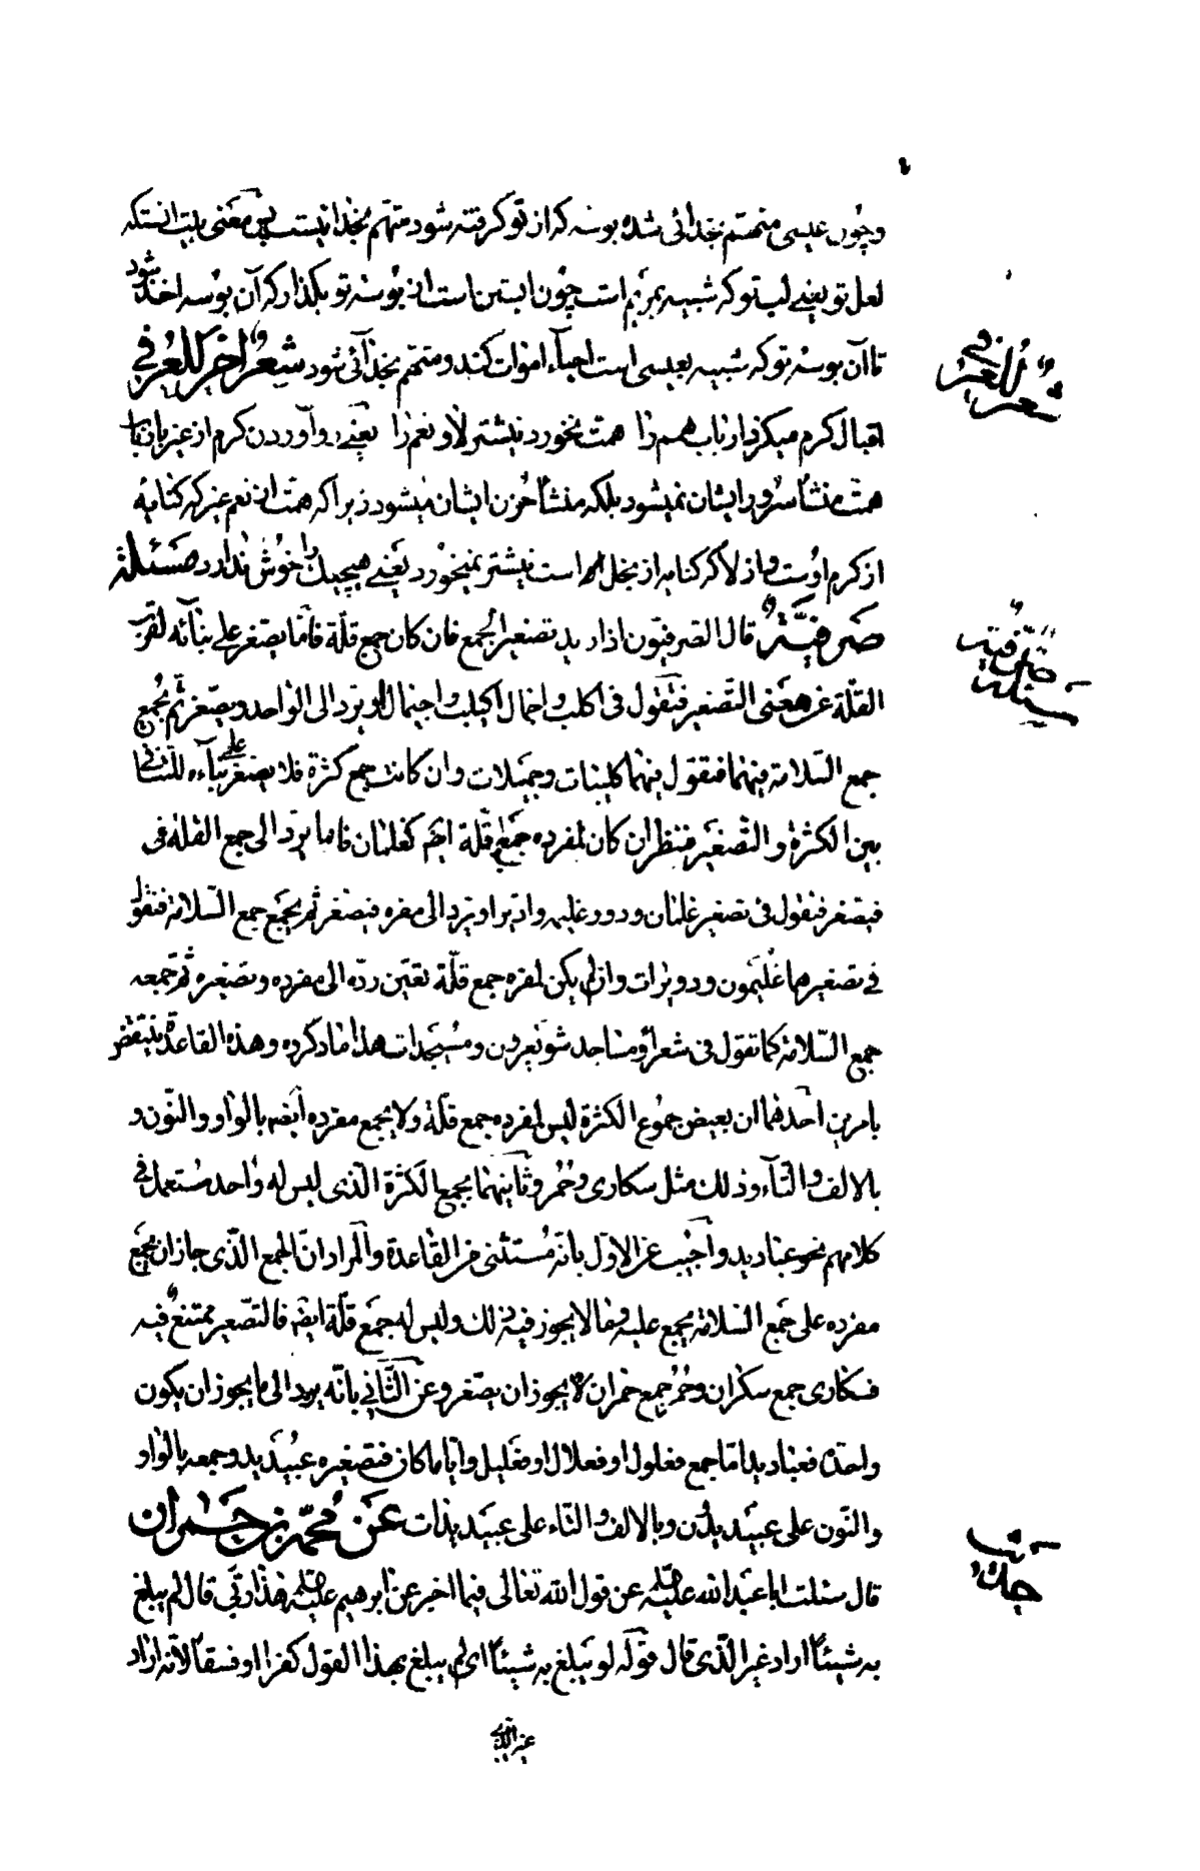 وچون عیسی متهم بخدائی شده بوسه که از تو گرفته شود متهم بخدا نیست پس معنی بیت انستکه
لعل تو یعنی لب تو که شبیه بمریم است چون ابستن است از بوسه تو بگذار که آن بوسه اخذ شود
تا آن بوسه تو که شبیه بعیسی است احیآء اموات کند و متهم بخدآئی شود شعرٌ اخر للعرفی
اقبال کرم میکزد ارباب همم را همت نخورد نیشتر لا و نعم را یعنی رو آوردن کرم از غیر بارباب
همت منشأ سرور ایشان نمیشود بلکه منشأ حزن ایشان میشود زیرا که همت از نعم غیر که کنایه
از کرم اوست و از لا که کنایه از بخل است نیشتر نمیخورد یعنی هیچیک را خوش ندارد مسئلة
صرفیّةٌ قال الصرفیّون اذا ارید تصغیر الجمع فان کان جمع قلّة فامّا یصغر علی بنآئه لقرب
القلّة من معنی التّصغیر فتقول فی اکلب و اجمال اکیلب و اجیمال او یرد الی الواحد و یصغر ثم یجمع
جمع السّلامة فیهما فتقول فیهما کلیبات و جمیلات و ان کانت جمع کثرة فلا یصغر علی بنآءه للتنافی
بین الکثرة و التّصغیر فتنظر ان کان لمفرده جمع قلّة ایضم کغلمان فاما یرد الی جمع القله فی
فیصغر فتقول فی تصغیر غلمان و دور غلیمه و ادیر او یرد الی مفره فیصغر ثم یجمع جمع السّلامة فتقول
فی تصغیرهما غلیمون و دویرات و ان لم یکن لمفره جمع قلّة تعیّن ردّه الی مفرده و تصغیره ثم جمعه
جمع السّلامة کما تقول فی شعرآء و مساجد شویعرون و مسیجدات هذا ما ذکروه و هذه القاعدة ینتقض
بامرین احدهما ان بعیض جموع الکثرة لیس لمفرده جمع قلّة و لا یجمع مفرده ایضم بالواو و النّون و
بالالف و التآء و ذلک مثل سکاری و حُمر و ثانیهما بجمع الکثرة الّذی لیس له واحد مستعمل فی
کلامهم نحو عبادید و اجیب عن الاوّل بانّه مستثنی من القاعدة و المراد انّ الجمع الّذی جاز ان یجمع
مفرده علی جمع السّلامة یجمع علیه و ما لا یجوز فیه ذلک و لیس له جمع قلّة ایضم فالتصغیر ممتنعٌ فیه
فسکاری جمع سکران و حُمر جمع حمران لا یجوز ان یصغر و عن الثّانی بانّه یرد الی ما یجوز ان یکون
واحده فعبادید امّا جمع فعلول او فعلال او فعلیل و ایّا ما کان فتصغیره عبیدید و جمعه بالواو
و النّون علی عبیدیدون و بالالف و التاء علی عبیدیدات عن محمّد بن حمران
قال سئلت ابا عبد الله علیه عن قول الله تعالی فیما اخبر عن ابرهیم علیه هذا ربّی قال لم یبلغ
به شیئًا اراد غیر الّذی قال قوله لم یبلغ به شیئًا ای لم یبلغ بهذا القول کفرا او فسقا لانّه اراد
غیر الذی
شعرٌ للعرفی
مسئلة صرفیة
حدیث